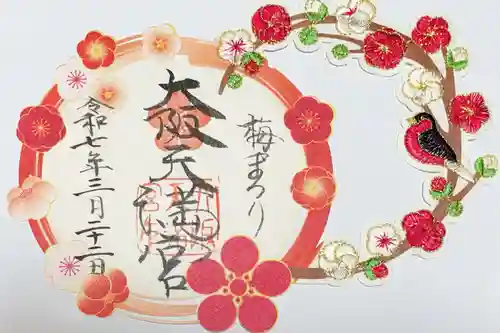 梅まつり
大阪天満宮
令和七年二月二十二日